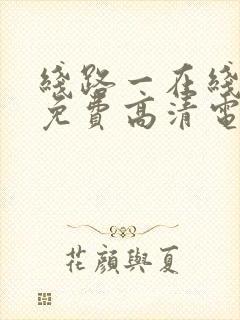 綫路一在綫
免費高清電
花顏與夏